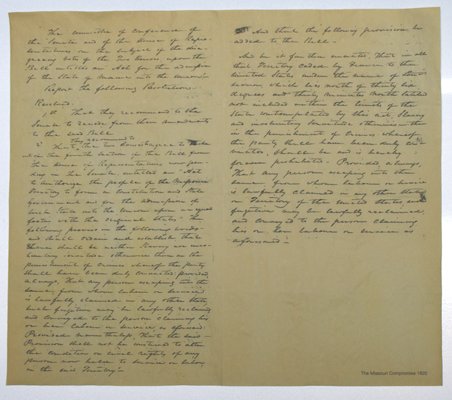 The committee of Conference of
the Senate and of the House of Repre-
sentatives on the subject of the disa-
greeing votes of the Two Houses, upon the
Bill entitled an Act for the admission
of the State of Maine into the Union
Report the following Resolution.
Resolved.
1st That they recommend to the
Senate to recede from their amendments
to the said Bill
2 That they recommend to the two Houses to
the fourth section in the Bill from
the House of Representatives now pen-
ding in the Senate, entitled an Act
to authorize the people of the Missouri
Territory to form a Constitution and State
government and for the admission of
such State into the Union upon an equal
footing with the original States. the
following proviso in the following words
and shall ordain and establish that
there shall be neither Slavery nor invo-
luntary servitude otherwise than in the
punishment of crimes whereof the party
shall have been duly convicted provided
always, That any person escaping into the
same from whom labour or service
is lawfully claimed in any other State
such fugitive may be lawfully reclaimed
and conveyed to the person claiming his
or her labour or service as aforesaid:
Provided nevertheless that the said
Provision shall not be construed to alter
the condition or civil rights of any
person now held to service or labour
in the said Territory.
And that the following provision be
added to the Bill.
And be it further enacted, That in all
that Territory ceded by France to the
United States under the name of
which lies north of thirty six
degrees and thirty minutes North latitude
not included within the limits of the
State contemplated by this act, Slavery
and involuntary servitude, otherwise than
in the punishment of crimes whereof
the party shall have been duly con-
victed, shall be and is hereby
forever prohibited. Provided always,
That any person escaping into the
same from whom labour or service
is lawfully claimed in any other State
or Territory of the United States, such
fugitive may be lawfully reclaimed
and conveyed to the person claiming
his or her labour or service as
aforesaid.
The Missouri Compromise 1820